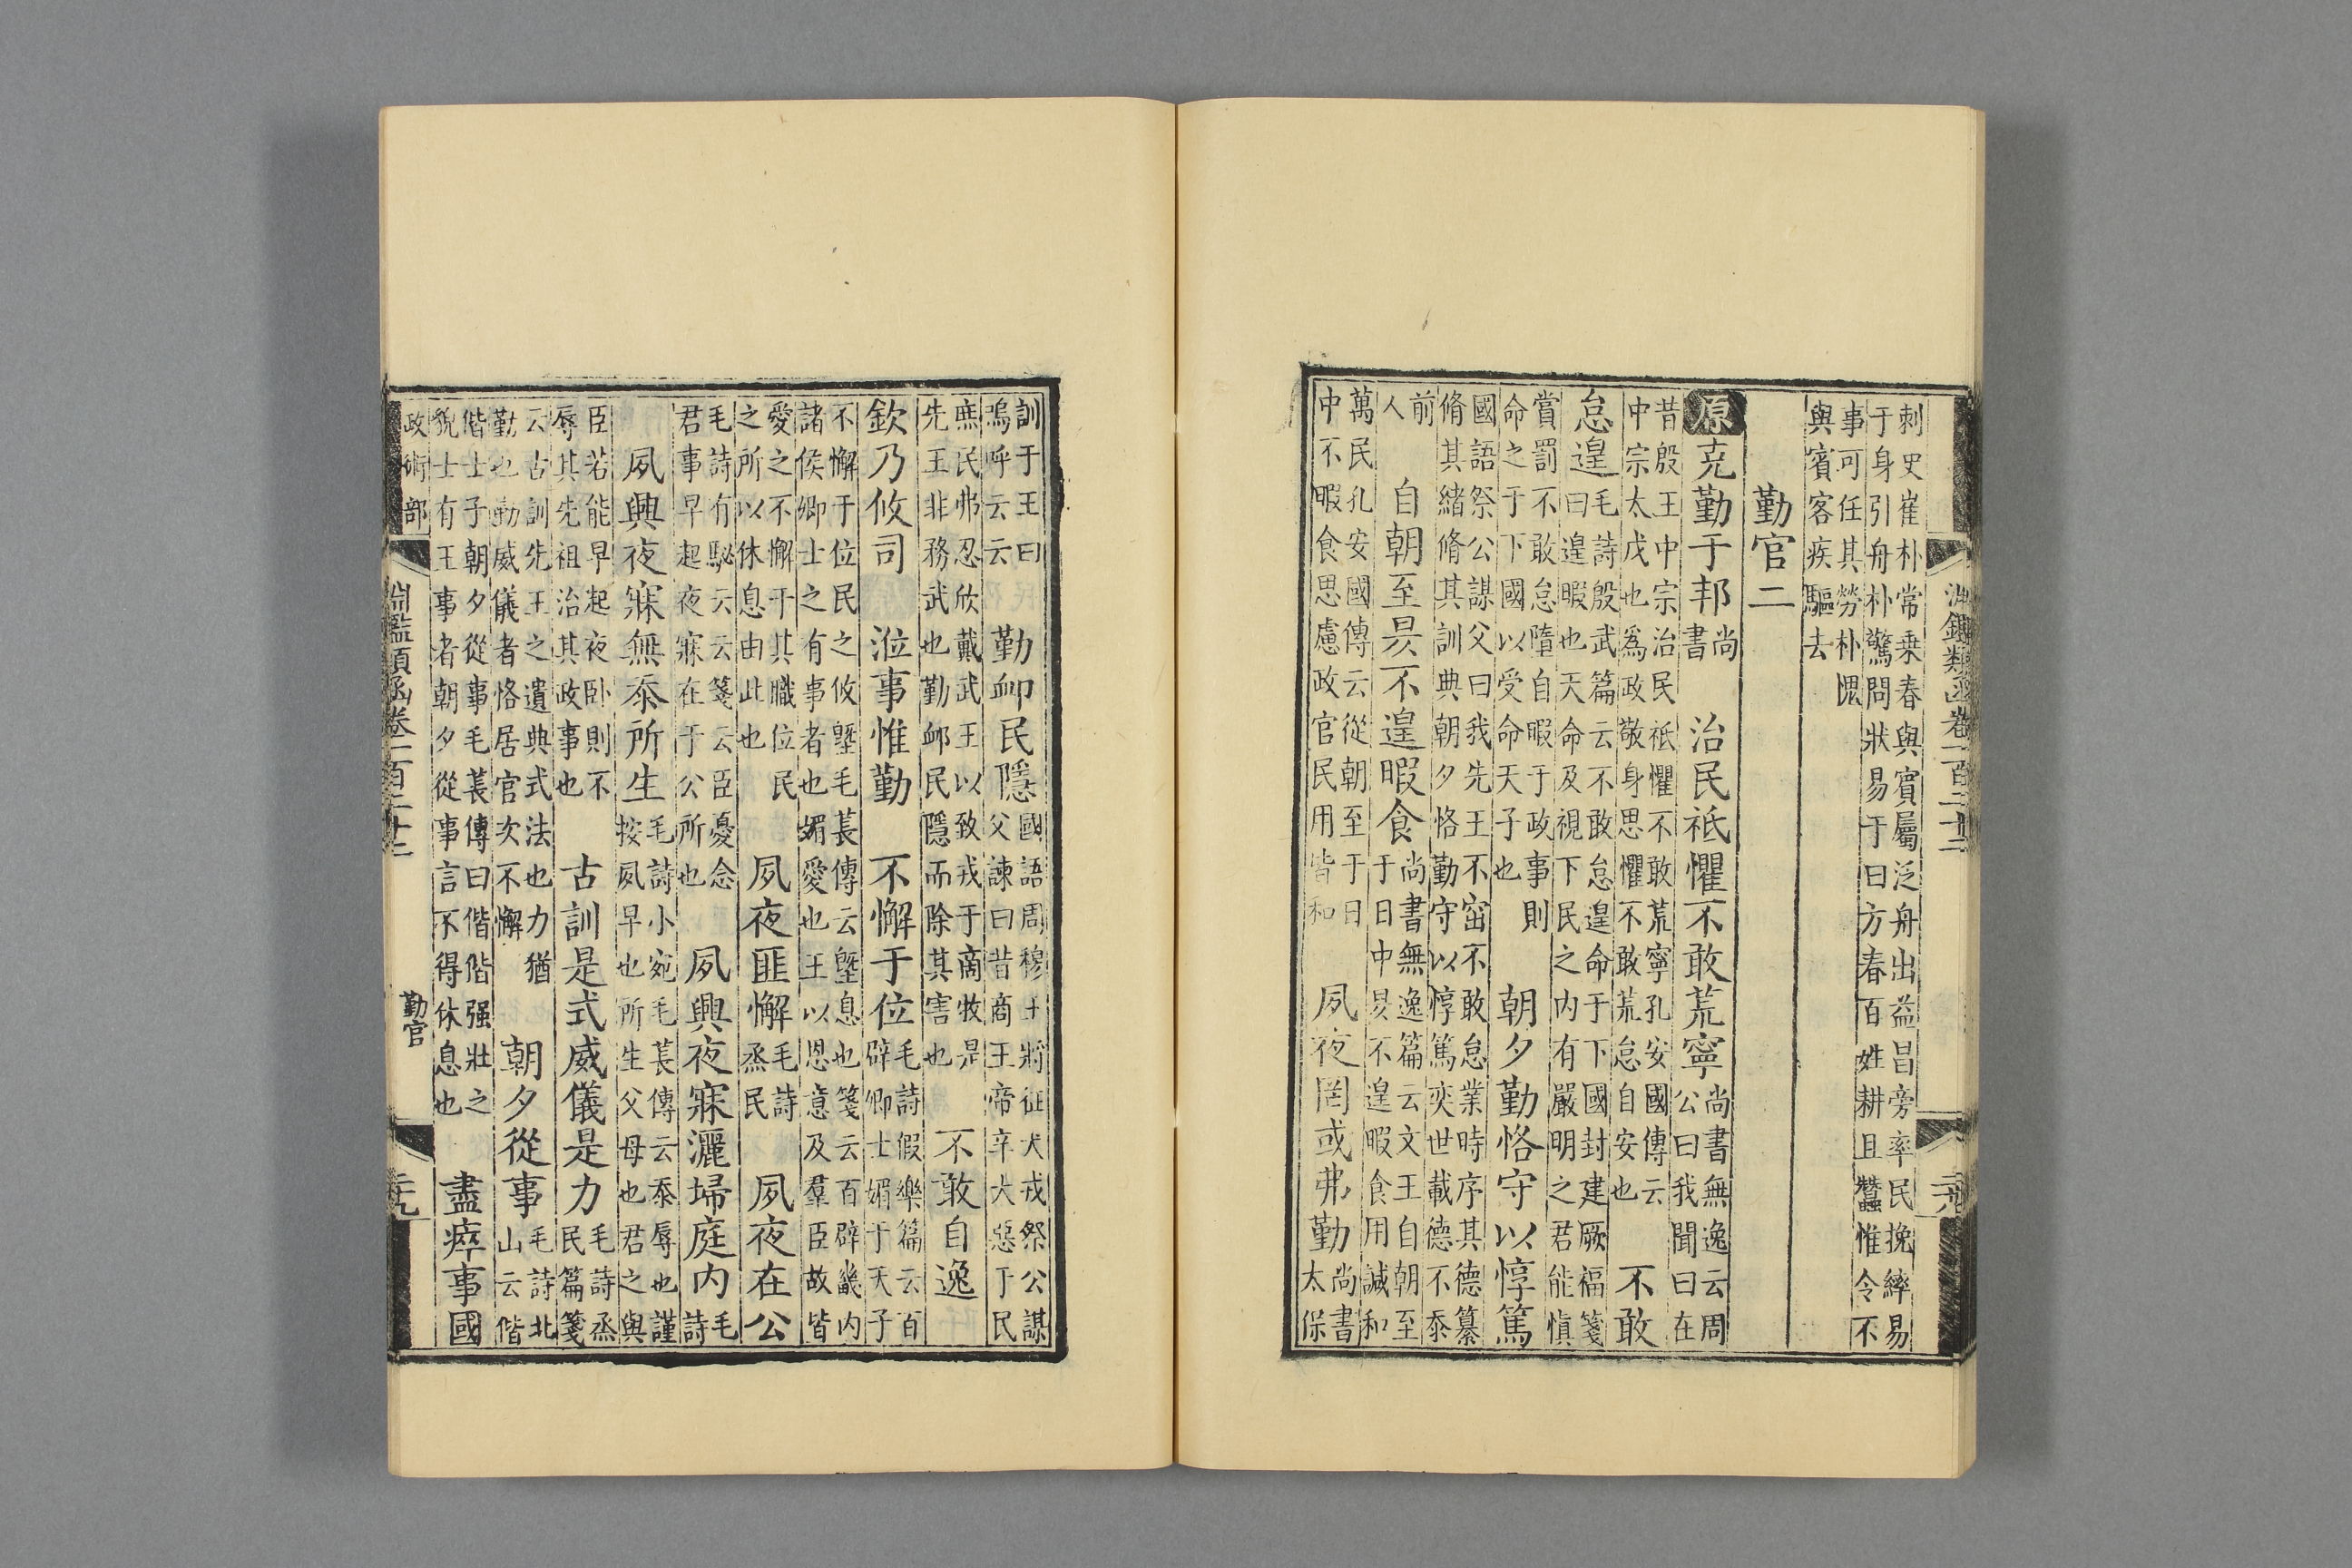 刺史崔朴常乗春與賓屬泛舟出益昌旁率民挽縴易
于身引舟朴驚問狀易于曰方春百姓耕且蠶惟令不
事可任其勞朴愧
與賓客疾驅去
勤官二
原克勤于邦尚
書
治民祗懼不敢荒寧尚書無逸云周
公曰我聞曰在
昔殷王中宗治民祗懼不敢荒寧孔安國傳云
中宗太戊也為政敬身思懼不敢荒怠自安也
不敢
怠遑毛詩殷武篇云不敢怠遑命于下國封建厥福箋
曰遑暇也天命及視下民之内有嚴明之君能慎
賞罰不敢怠隋自暇于政事則
命之于下國以受命天子也
朝夕勤恪守以惇篤
國語祭公謀父曰我先王不窋不敢怠業時序其德纂
脩其緒脩其訓典朝夕恪勤守以惇篤奕世載德不忝
前
人
自朝至昃不遑暇食尚書無逸篇云文王自朝至
于日中昃不遑暇食用諴和
萬民孔安國傳云從朝至于日
中不暇食思慮政官民用皆和
夙夜罔或弗勤尚書
太保
訓于王曰
嗚呼云云
勤卹民隱國語周穆王將征犬戎祭公謀
父諫曰昔商王帝辛大惡于民
庶民弗忍欣戴武王以致戎于商牧是
先王非務武也勤卹民隱而除其害也
不敢自逸
欽乃攸司
涖事惟勤
不懈于位毛詩假樂篇云百
辟卿士媚于天子
不懈于位民之攸墍毛萇傳云墍息也箋云百辟畿内
諸侯卿士之有事者也媚愛也王以恩意及羣臣故皆
愛之不懈于其職位民
之所以休息由此也
夙夜匪懈毛詩
烝民
夙夜在公
毛詩有駜云云箋云臣憂念
君事早起夜寐在于公所也
夙興夜寐灑埽庭内毛
詩
夙興夜寐無忝所生毛詩小宛毛萇傳云忝辱也謹
按夙早也所生父母也君之與
臣若能早起夜卧則不
辱其先祖治其政事也
古訓是式威儀是力毛詩烝
民篇箋
云古訓先王之遺典式法也力猶
勤也勤威儀者恪居官次不懈
朝夕從事毛詩北
山云偕
偕士子朝夕從事毛萇傳曰偕偕强壯之
貌士有王事者朝夕從事言不得休息也
盡瘁事國
政術部
淵鑑類函卷一百二十二
勤官